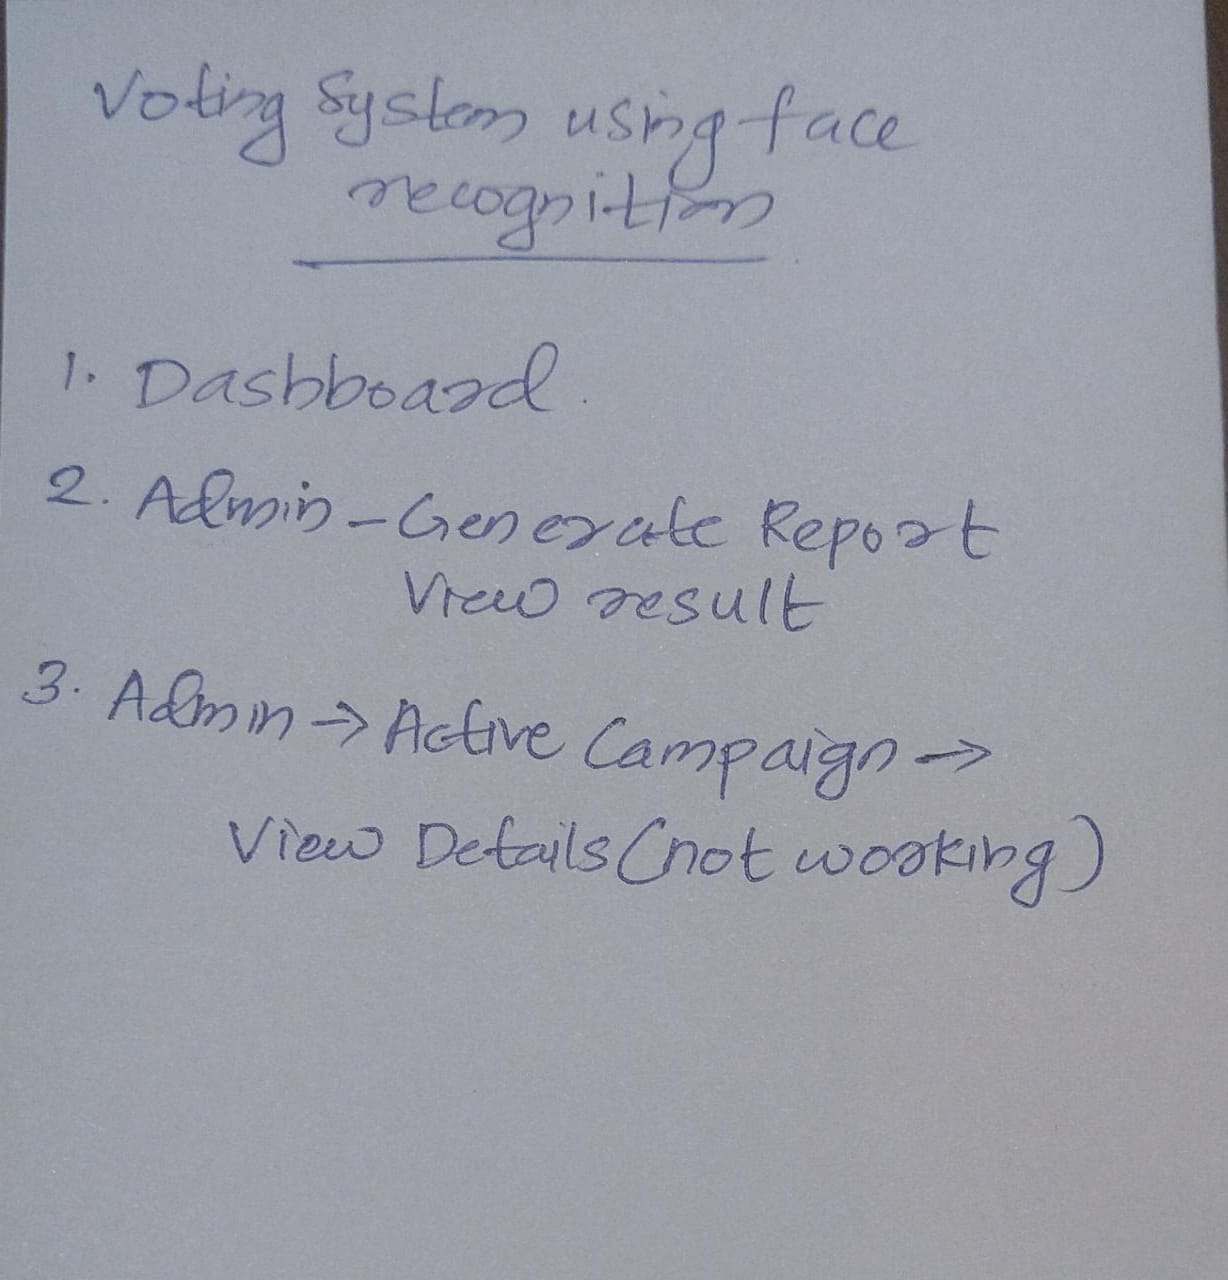 Voting System using face
recognition
1. Dashboard.
2. Admin - Generate Report
View result
3. Admin → Active Campaign →
View Details (not working)